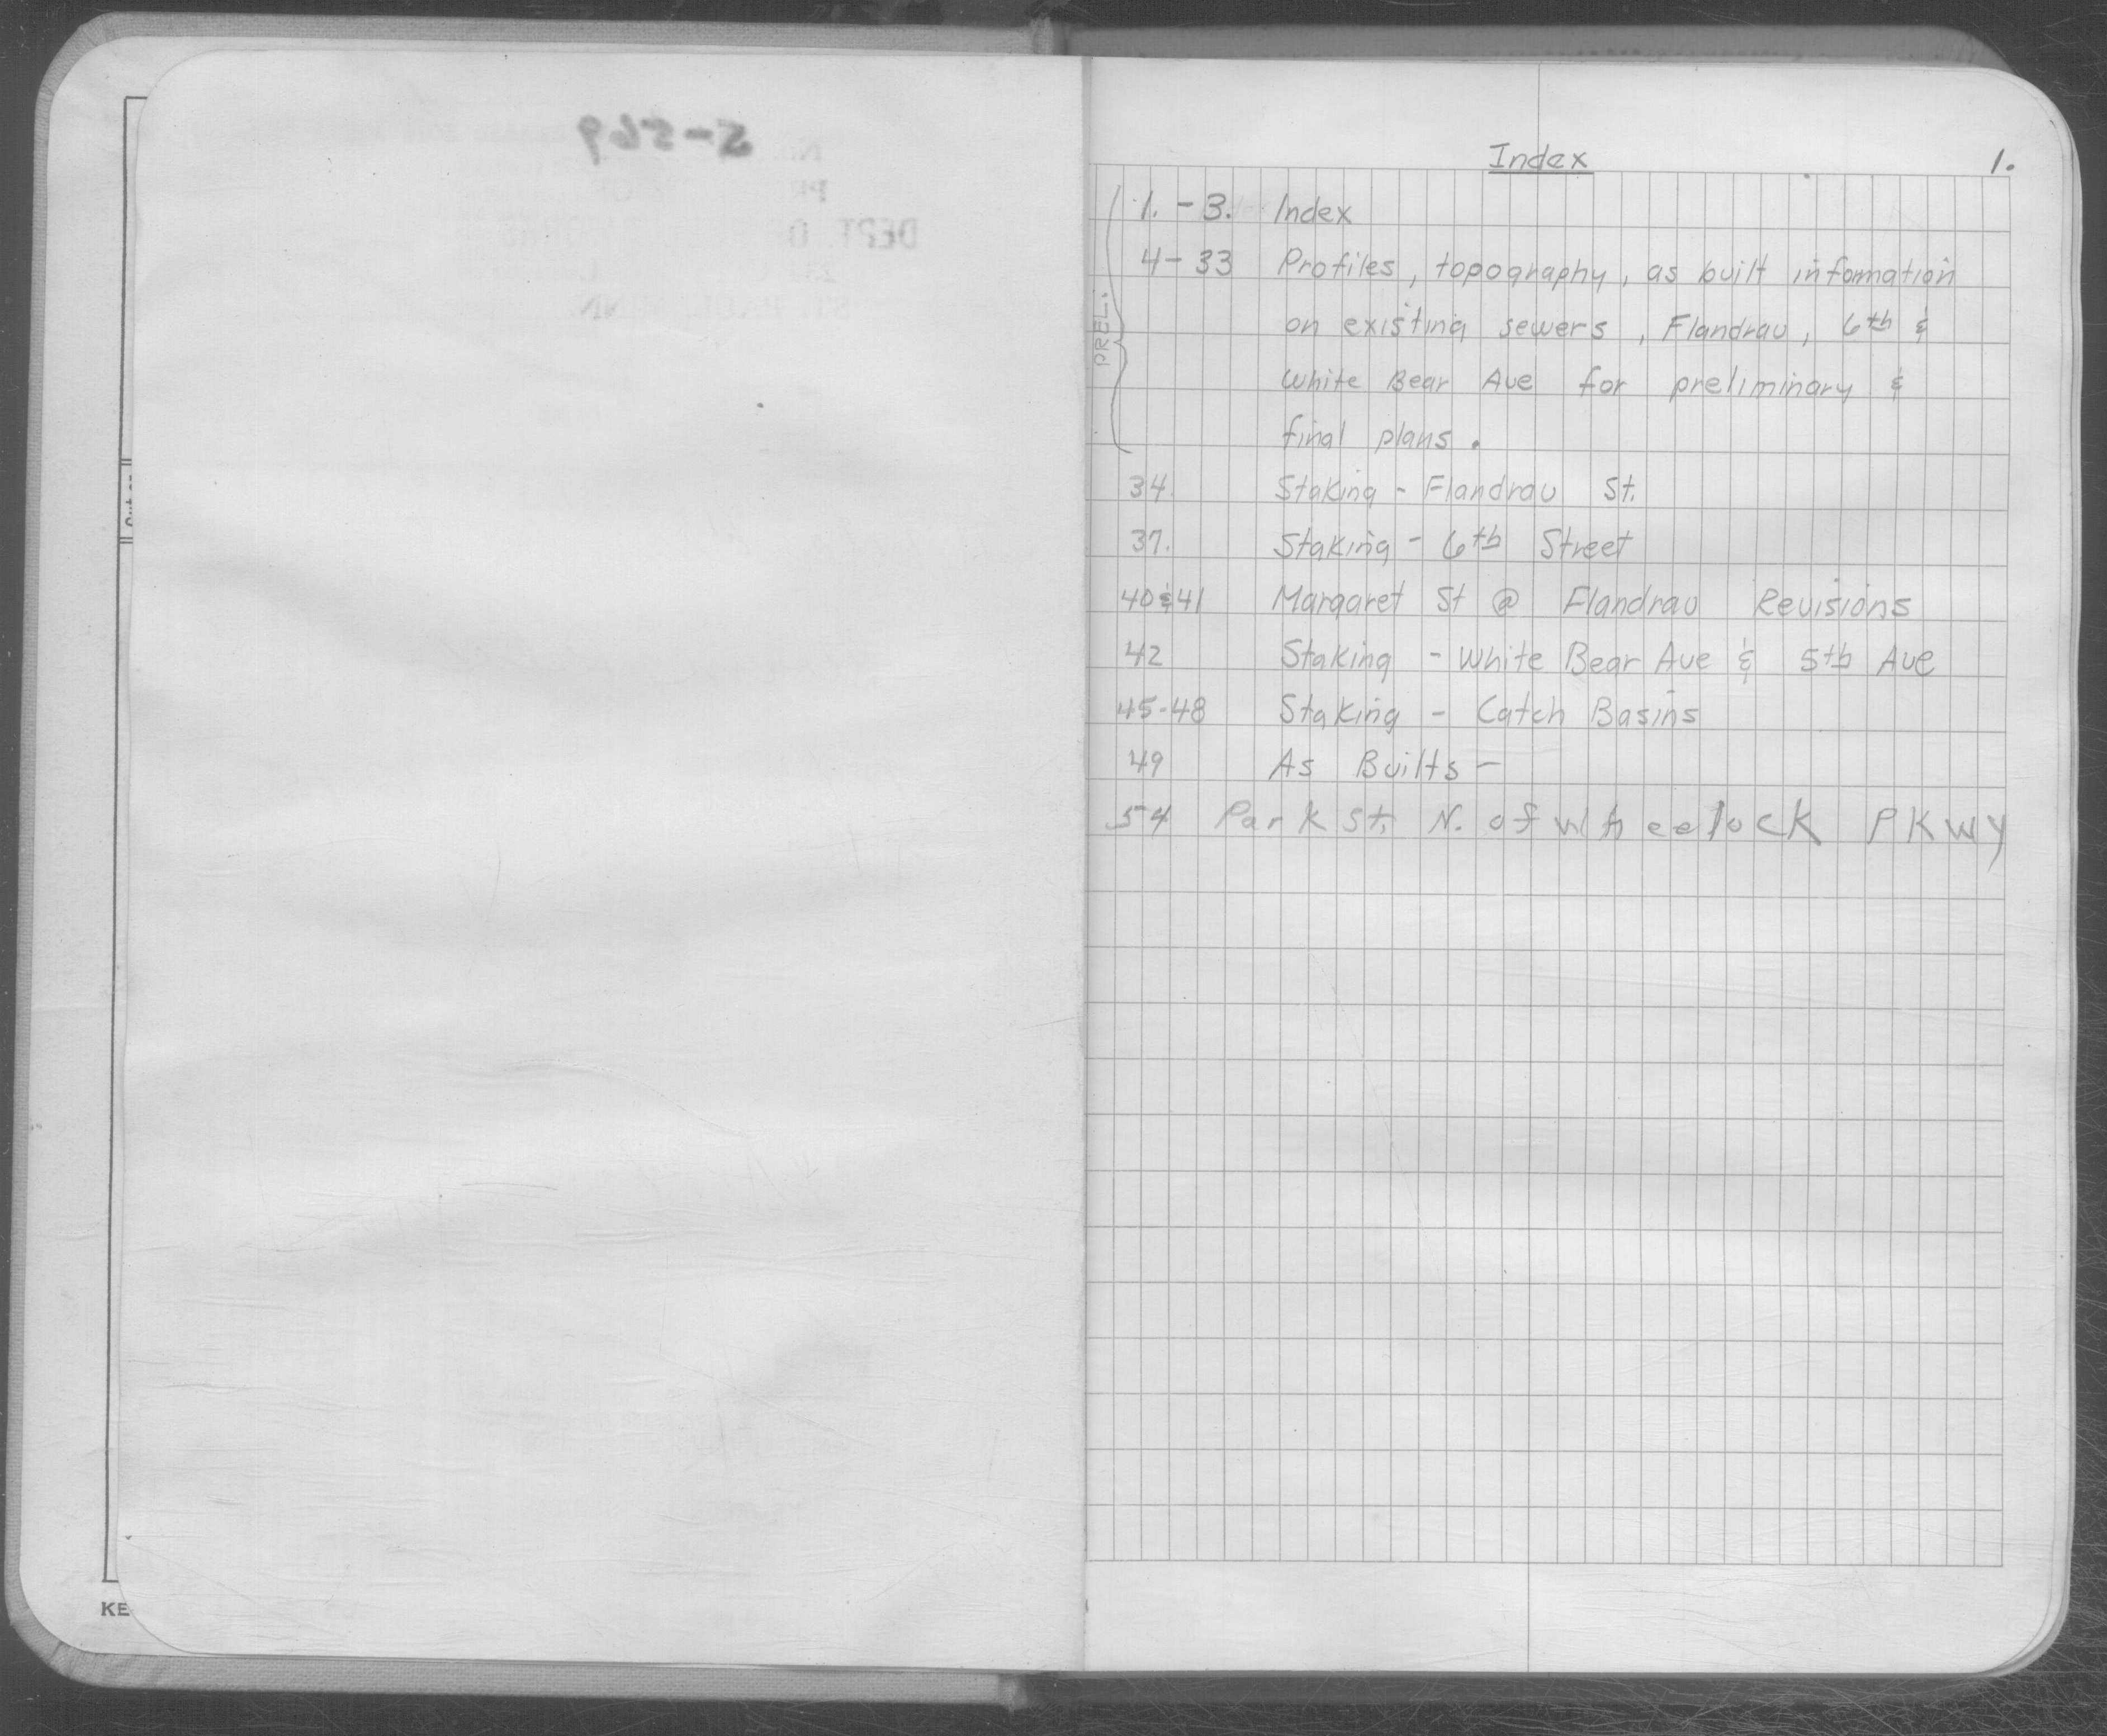 5-569
Index 1.
1. - 3. Index
4 - 33 Profiles, topography, as built information
on existing sewers, Flandrau, 6th &
White Bear Ave for preliminary &
final plans.
PREL.
34. Staking - Flandrau St.
37. Staking - 6th Street
40&41 Margaret St @ Flandrau Revisions
42 Staking - White Bear Ave & 5th Ave
45-48 Staking - Catch Basins
49 As Builts -
54 Park St. N. of Wheelock PKWY
KE